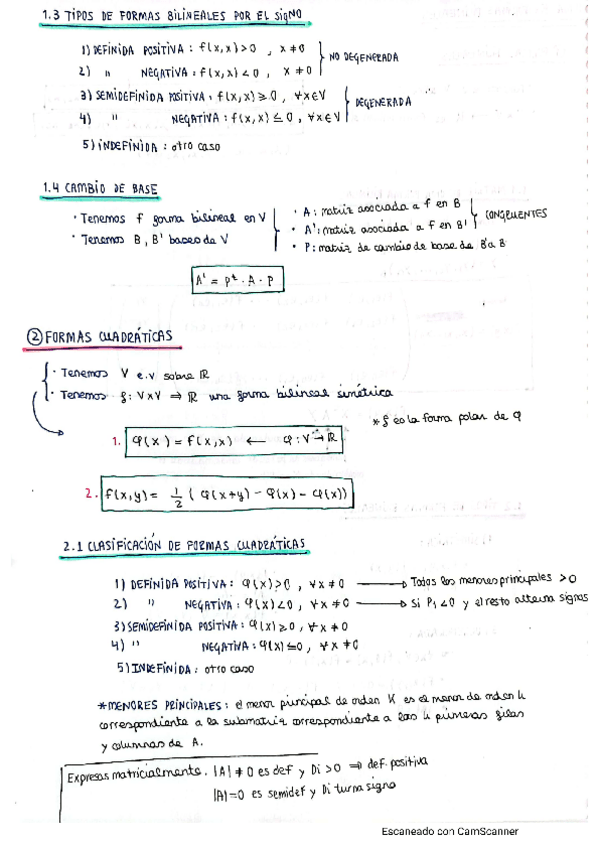 1.3 TIPOS DE FORMAS BILINEALES POR EL SIGNO
1) DEFINIDA POSITIVA : f(x,x) > 0 , x ≠ 0
2) " NEGATIVA : f(x,x) < 0 , x ≠ 0
NO DEGENERADA
3) SEMIDEFINIDA POSITIVA : f(x,x) ≥ 0 , ∀x∈V
4) " NEGATIVA : f(x,x) ≤ 0 , ∀x∈V
DEGENERADA
5) INDEFINIDA : otro caso
1.4 CAMBIO DE BASE
· Tenemos f forma bilineal en V
· Tenemos B, B' bases de V
· A : matriz asociada a f en B
· A' : matriz asociada a f en B'
· P : matriz de cambio de base de B' a B
CONGRUENTES
A' = Pᵗ · A · P
② FORMAS CUADRÁTICAS
· Tenemos V e.v sobre ℝ
· Tenemos f : V×V ⇒ ℝ una forma bilineal simétrica
* f es la forma polar de φ
1. φ(x) = f(x,x) ← φ : V → ℝ
2. f(x,y) = 1/2 ( φ(x+y) - φ(x) - φ(x))
2.1 CLASIFICACIÓN DE FORMAS CUADRÁTICAS
1) DEFINIDA POSITIVA : φ(x) > 0 , ∀x ≠ 0 → Todos los menores principales > 0
2) " NEGATIVA : φ(x) < 0 , ∀x ≠ 0 → Si P₁ < 0 y el resto alterna signos
3) SEMIDEFINIDA POSITIVA : φ(x) ≥ 0 , ∀x ≠ 0
4) " NEGATIVA : φ(x) ≤ 0 , ∀x ≠ 0
5) INDEFINIDA : otro caso
*MENORES PRINCIPALES : el menor principal de orden K es el menor de orden k
correspondiente a la submatriz correspondiente a las k primeras filas
y columnas de A.
Expresas matricialmente. |A| ≠ 0 es def y Di > 0 ⇒ def. positiva
|A| = 0 es semidef y Di turna signo
Escaneado con CamScanner